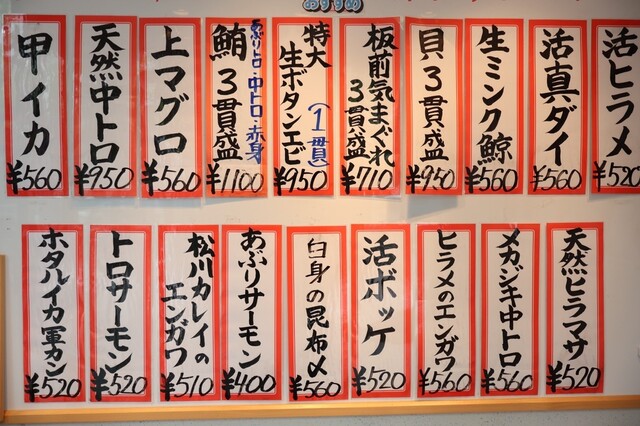 おすすめ
活ヒラメ
¥520
活真ダイ
¥560
生ミンク鯨
¥560
貝3貫盛
¥950
板前気まぐれ
3貫盛
¥710
特大
生ボタンエビ
(1貫)
¥950
あぶりトロ・中トロ・赤身
鮪3貫盛
¥1100
上マグロ
¥560
天然中トロ
¥950
甲イカ
¥560
天然ヒラマサ
¥520
メカジキ中トロ
¥560
ヒラメのエンガワ
¥560
活ボッケ
¥520
白身の昆布〆
¥560
あぶりサーモン
¥400
松川カレイの
エンガワ
¥510
トロサーモン
¥520
ホタルイカ軍カン
¥520